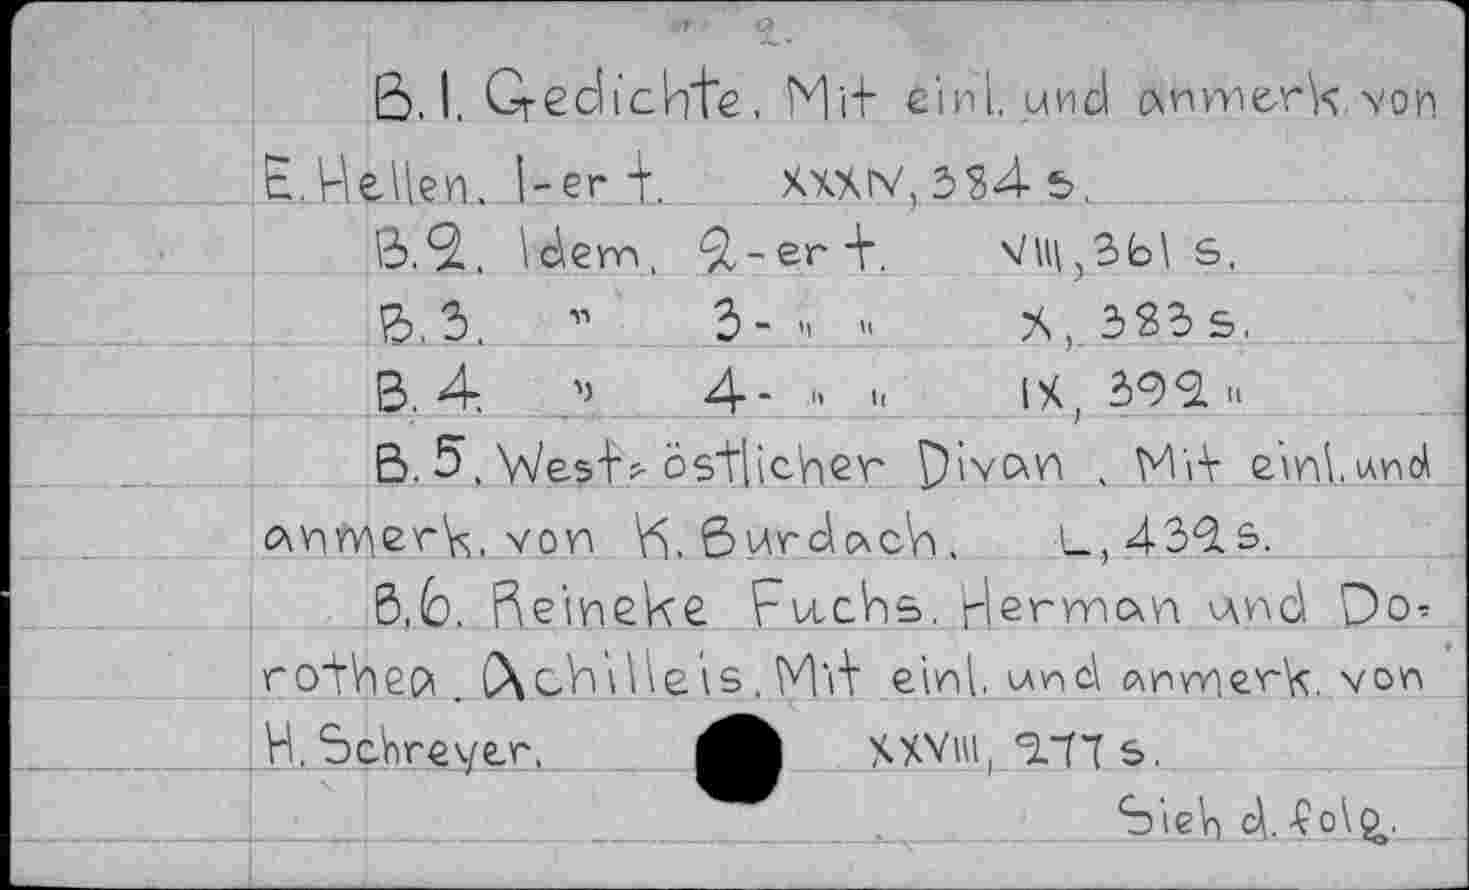 2.
B. 1. Gedichte. Mit einl. und anmerk. von
E. Hellen. 1-er t. XXXIV, 384 s.
B. 2. Idem. 2-er t. VIII, 361 s.
B. 3. " 3- " " X, 383 s.
B. 4. " 4- " " IX, 392 "
B. 5. West-östlicher Divan . Mit einl. und
anmerk. von K. Burdach. L, 432 s.
B. 6. Reineke Fuchs. Herman und Do-
rothea. Achilleis. Mit einl. und anmerk. von
H. Schreyer. XXVIII, 277 s.
Sieh d. folg.